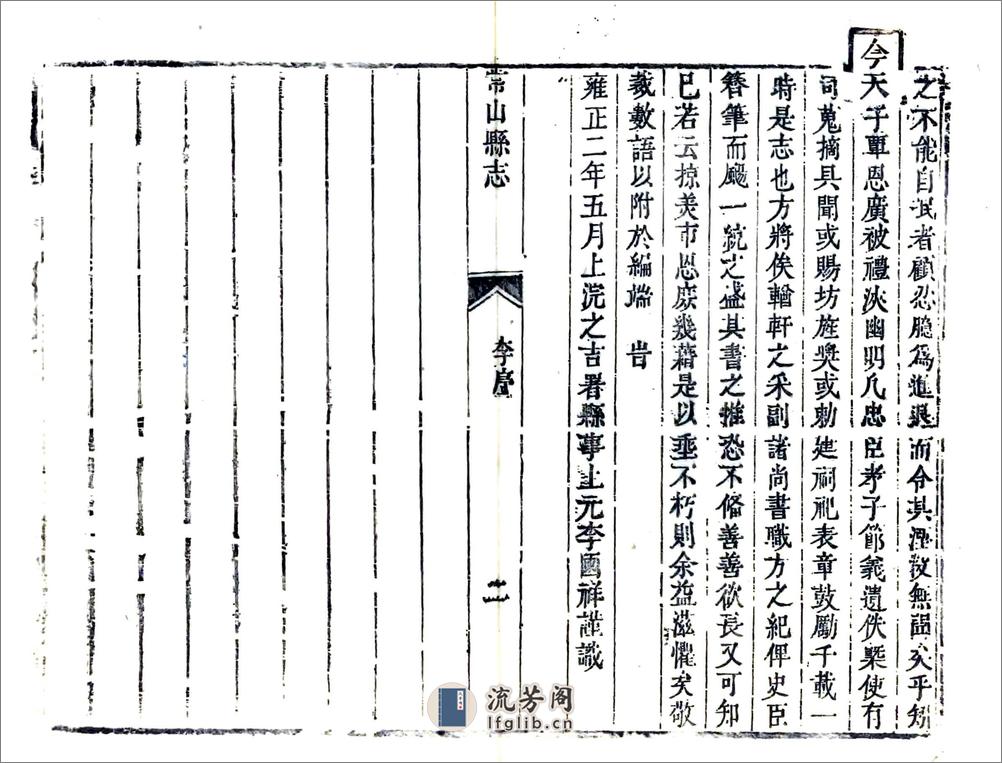 之不能自泯者顧忍隱爲進退而令其湮歿無聞矣乎矧
今天子覃恩廣被禮浹幽明凡忠臣孝子節義遺佚槩使有
司蒐摘具聞或賜坊旌奬或勅建祠祀表章鼓勵千載一
時是志也方將俟輶軒之采副諸尚書職方之紀俾史臣
簪筆而颺一統之盛其書之惟恐不偹善善欲長又可知
已若云掠美市恩庶幾藉是以垂不朽則余益滋懼矣敬
裁數語以附於編端 旹
雍正二年五月上浣之吉署縣事上元李國祥謹識
常山縣志
李序
二
流芳阁
lfglib.cn